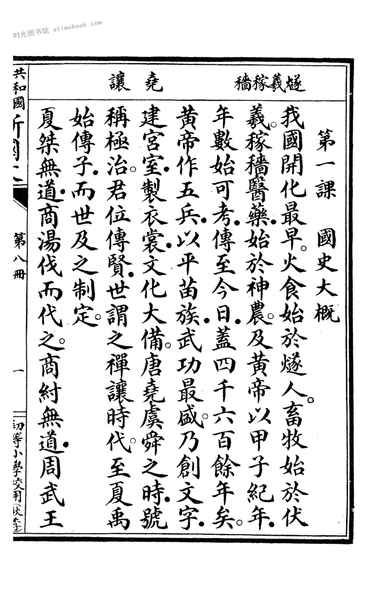 时光图书馆 alimebook.com
燧羲稼穡
堯讓
第一課　國史大概
我國開化最早。火食始於燧人。畜牧始於伏
羲。稼穡醫藥。始於神農。及黃帝以甲子紀年。
年數始可考。傳至今日。蓋四千六百餘年矣。
黃帝作五兵。以平苗族。武功最盛。乃創文字。
建宮室。製衣裳。文化大備。唐堯虞舜之時。號
稱極治。君位傳賢。世謂之禪讓時代。至夏禹
始傳子。而世及之制定。
夏桀無道。商湯伐而代之。商紂無道。周武王
共和國
第八冊
一
初等小學校用